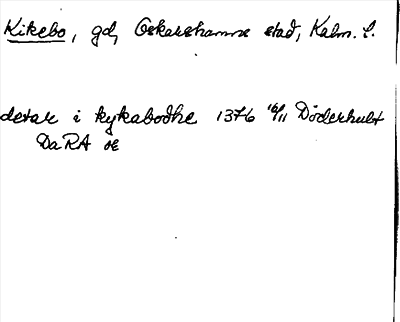 Kikebo, gd, Oskarshamns stad, Kalm. l.
detar i kykabodhe 1376 16/11 Döderhult
DaRA oe